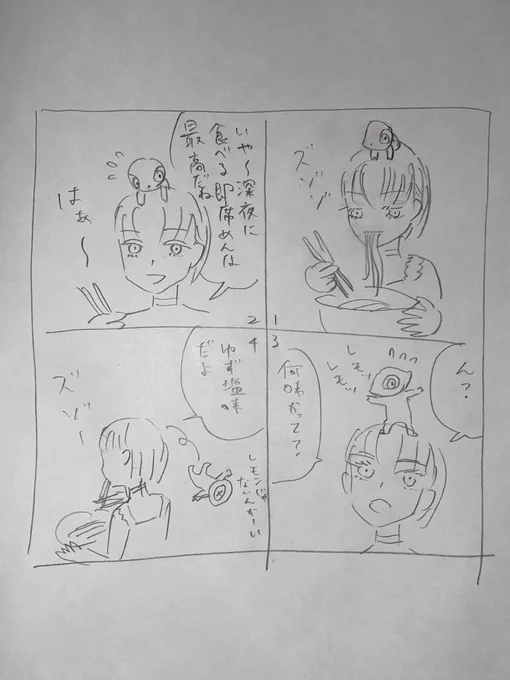 ズゾゾ
1
いや〜深夜に
食べる即席めんは
最高だね
はぁ〜
2
ん?
レモッ
レモッ
何味かって?
3
ゆず塩味
だよ
ズゾー
レモンじゃ
ないんかーい
4